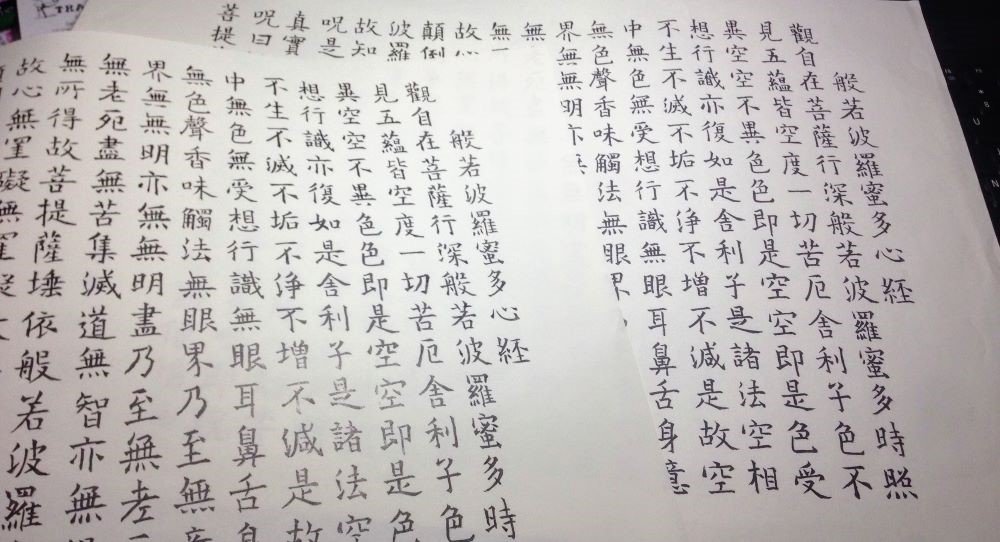 般若波羅蜜多心経
觀自在菩薩行深般若波羅蜜多時照
見五蘊皆空度一切苦厄舎利子色不
異空空不異色色即是空空即是色受
想行識亦復如是舎利子是諸法空相
不生不滅不垢不浄不増不減是故空
中無色無受想行識無眼耳鼻舌身意
無色聲香味觸法無眼界
界無無明亦無
無
無
故心
顛倒
波羅
故知
呪是
真實
呪曰
菩提
般若波羅蜜多心経
觀自在菩薩行深般若波羅蜜多時
見五蘊皆空度一切苦厄舎利子色
異空空不異色色即是空空即是色
想行識亦復如是舎利子是諸法空
不生不滅不垢不浄不増不減是故
中無色無受想行識無眼耳鼻舌身
無色聲香味觸法無眼界乃至無意
界無無明亦無無明盡乃至無老
無老死盡無苦集滅道無智亦無得
無所得故菩提薩埵依般若波羅
故心無罣礙無罣礙
TRA